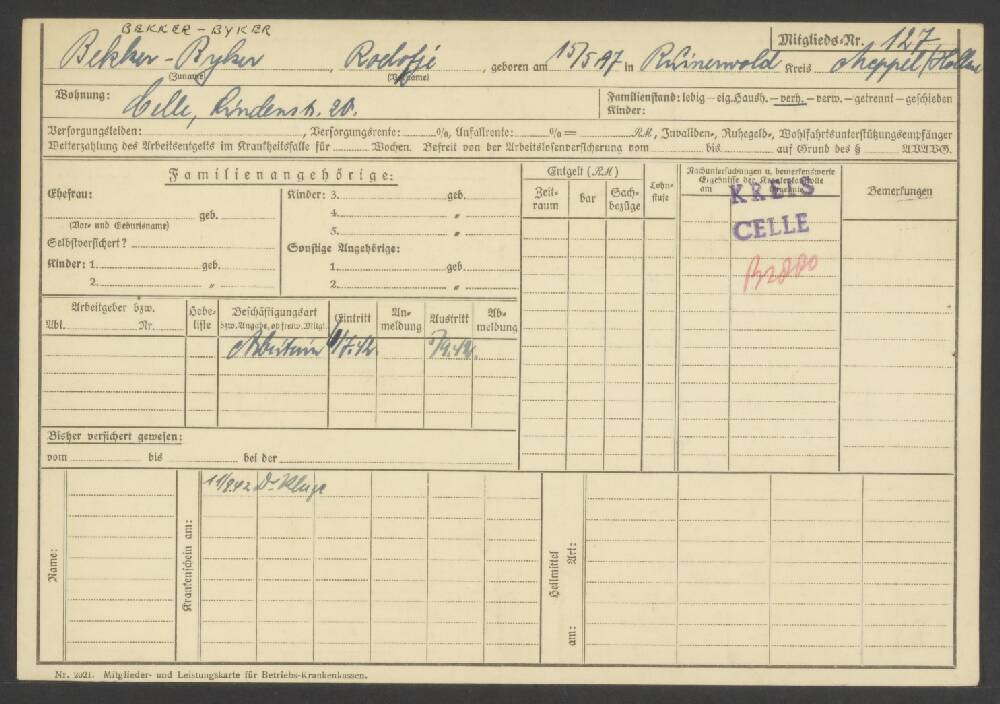 BEKKER - BYKER
Mitglieds=Nr. 127
Bekker - Byker, Roelofje, geboren am 15/5 97 in Ruinerwold Kreis Meppel/Holland
(Zuname) (Vorname)
Wohnung: Celle, Lindenstr. 20.
Familienstand: ledig – eig. Haush. – verh. – verw. – getrennt – geschieden
Kinder:
Versorgungsleiden: , Versorgungsrente: %, Unfallrente: % = RM, Invaliden-, Ruhegeld-, Wohlfahrtsunterstützungsempfänger
Weiterzahlung des Arbeitsentgelts im Krankheitsfalle für Wochen. Befreit von der Arbeitslosenversicherung vom bis auf Grund des § AVAVG.
Familienangehörige:
Ehefrau:
geb.
(Vor= und Geburtsname)
Selbstversichert?
Kinder: 1. geb.
2. "
Kinder: 3. geb.
4. "
5. "
Sonstige Angehörige:
1. geb.
2. "
Entgelt (RM)
Zeit-
raum
bar
Sach-
bezüge
Lohn-
stufe
Nachuntersuchungen u. bemerkenswerte
Ergebnisse der Krankenkontrolle
am Ergebnis
KREIS
CELLE
Bemerkungen
Arbeitgeber bzw.
Abt. Nr.
Hebe-
liste
Beschäftigungsart
bzw. Angabe, ob freiw. Mitgl.
Eintritt
An-
meldung
Austritt
Ab-
meldung
Arbeiterin /7.42. /9.42.
Bisher versichert gewesen:
vom bis bei der
Name:
Krankenschein am:
11/8.42 Dr Kluge
Heilmittel
Art:
am:
Nr. 2021. Mitglieder- und Leistungskarte für Betriebs-Krankenkassen.